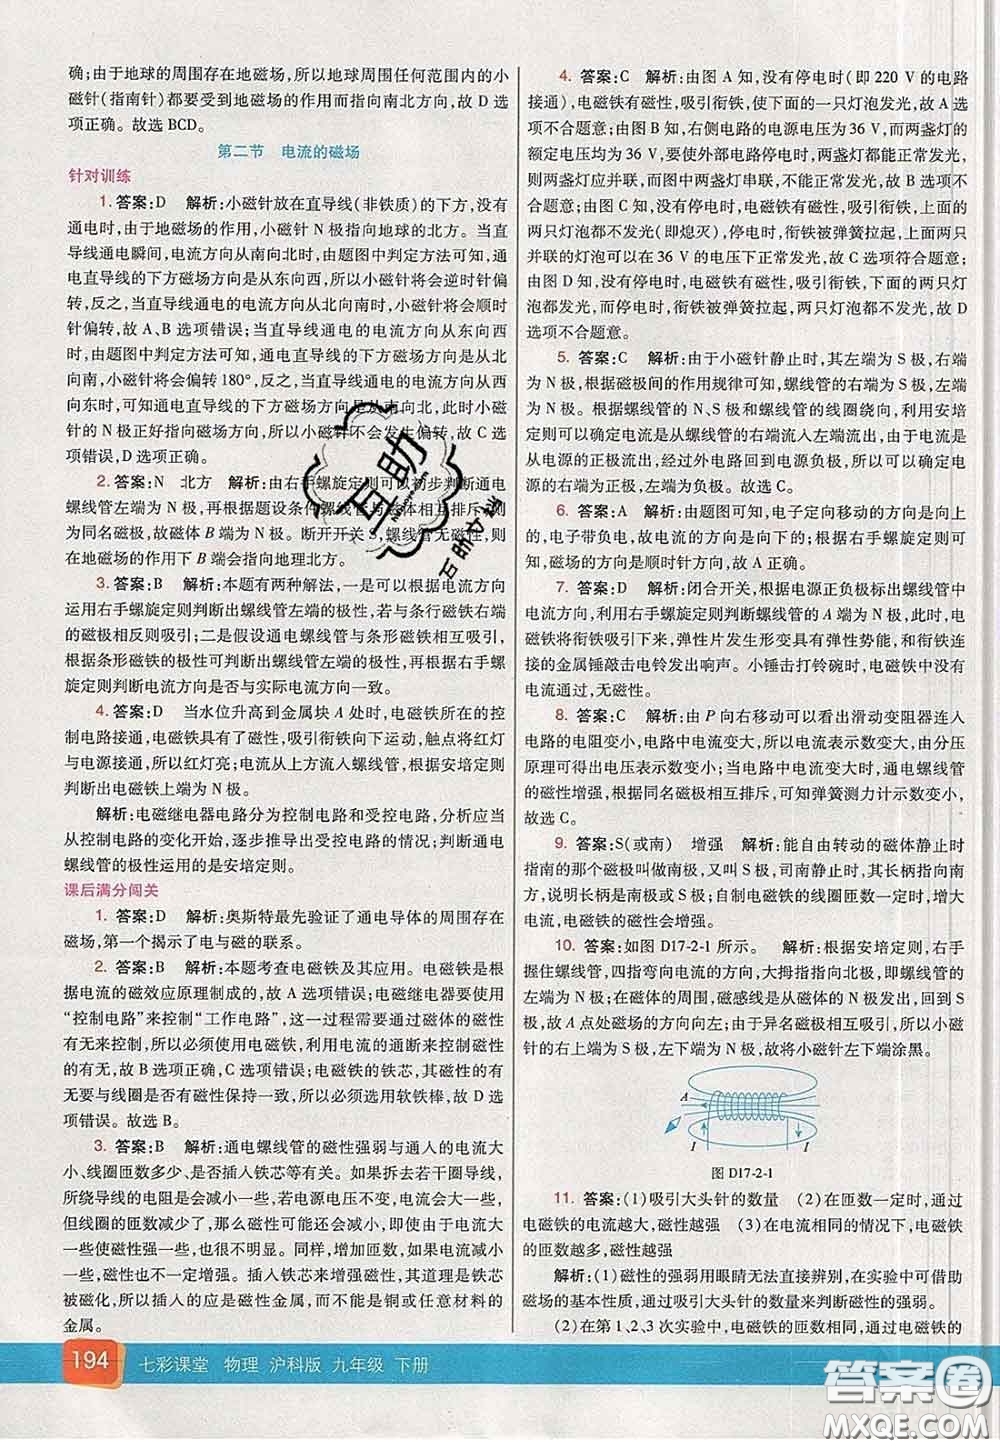 确;由于地球的周围存在地磁场,所以地球周围任何范围内的小
磁针(指南针)都要受到地磁场的作用而指向南北方向,故 D 选
项正确。故选 BCD。
第二节 电流的磁场
针对训练
1. 答案:D 解析:小磁针放在直导线(非铁质)的下方,没有
通电时,由于地磁场的作用,小磁针 N 极指向地球的北方。当直
导线通电瞬间,电流方向从南向北时,由题图中判定方法可知,通
电直导线的下方磁场方向是从东向西,所以小磁针将会逆时针偏
转,反之,当直导线通电的电流方向从北向南时,小磁针将会顺时
针偏转,故 A、B 选项错误;当直导线通电的电流方向从东向西
时,由题图中判定方法可知,通电直导线的下方磁场方向是从北
向南,小磁针将会偏转 180°,反之,当直导线通电的电流方向从西
向东时,可知通电直导线的下方磁场方向是从南向北,此时小磁
针的 N 极正好指向磁场方向,所以小磁针不会发生偏转,故 C 选
项错误,D 选项正确。
2. 答案:N 北方 解析:由右手螺旋定则可以初步判断通电
螺线管左端为 N 极,再根据题设条件螺线管与磁体相互排斥,则
为同名磁极,故磁体 B 端为 N 极。断开开关 S,螺线管无磁性,则
在地磁场的作用下 B 端会指向地理北方。
3. 答案:B 解析:本题有两种解法,一是可以根据电流方向
运用右手螺旋定则判断出螺线管左端的极性,若与条行磁铁右端
的磁极相反则吸引;二是假设通电螺线管与条形磁铁相互吸引,
根据条形磁铁的极性可判断出螺线管左端的极性,再根据右手螺
旋定则判断电流方向是否与实际电流方向一致。
4. 答案:D 当水位升高到金属块 A 处时,电磁铁所在的控
制电路接通,电磁铁具有了磁性,吸引衔铁向下运动,触点将红灯
与电源接通,所以红灯亮;电流从上方流入螺线管,由安培定则可
判断出电磁铁上端为 N 极。
解析:电磁继电器电路分为控制电路和受控电路,分析应当
从控制电路的变化开始,逐步推导出受控电路的情况;判断通电
螺线管的极性运用的是安培定则。
课后满分闯关
1. 答案:D 解析:奥斯特最先验证了通电导体的周围存在
磁场,第一个揭示了电与磁的联系。
2. 答案:B 解析:本题考查电磁铁及其应用。电磁铁是根
据电流的磁效应原理制成的,故 A 选项错误;电磁继电器要使用
“控制电路”来控制“工作电路”,这一过程需要通过磁体的磁性
有无来控制,所以必须使用电磁铁,利用电流的通断来控制磁性
的有无,故 B 选项正确,C 选项错误;电磁铁的铁芯,其磁性有
无要与线圈是否有磁性保持一致,所以必须选用软铁棒,故 D 选
项错误。故选 B。
3. 答案:B 解析:通电螺线管的磁性强弱与通入的电流大
小、线圈匝数多少、是否插入铁芯等有关。如果拆去若干圈导线,
导线的电阻是会减小一些,若电源电压不变,电流会增大一些,但
线圈的匝数减少了,那么磁性可能还会减小,即使由于电流大一
些使磁性强一些,也不会太强。同样,增加匝数,如果电流减小一
些,磁性也不一定增强。插入铁芯来增强磁性,其道理是铁芯
被磁化,所以插入的应是磁性金属,而不能是铜或任意材料的
金属。
4. 答案:C 解析:由图 A 知,没有停电时(即 220 V 的电路
接通),电磁铁有磁性,吸引衔铁,使下面的一只灯泡发光,故 A 选
项不合题意;由图 B 知,右侧电路的电源电压为 36 V,两盏灯的
额定电压均为 36 V,要使外部电路停电时,两盏灯能正常发光,
则两盏灯应并联,而图中两盏灯串联,不能正常发光,故 B 选项不
合题意;由图 C 知,没有停电时,电磁铁有磁性,吸引衔铁,下面的
两只灯泡不发光(即熄灭),停电时,衔铁被弹簧拉起,上面两只
并联的灯泡可以在 36 V 的电压下正常发光,故 C 选项符合题意;
由图 D 知,没有停电时,电磁铁有磁性,吸引衔铁,下面两只灯泡
发光,而停电时,衔铁被弹簧拉起,两只灯泡都不发光,故 D
选项不合题意。
5. 答案:C 解析:由于小磁针静止时,其左端为 S 极,右端
为 N 极,根据磁极间的作用规律可知,螺线管的右端为 S 极,左端
为 N 极。根据螺线管的 N、S 极和螺线管的线圈绕向,利用安培
定则可以确定电流是从螺线管的右端流入左端流出,由于电流是
从电源的正极流出,经过外电路回到电源负极,所以可以确定电
源的右端为正极,左端为负极。故选 C。
6. 答案:A 解析:由题图可知,电子定向移动的方向是向上
的,电子带负电,故电流的方向是向下的;根据右手螺旋定则可
知,磁场的方向是顺时针方向,故 A 正确。
7. 答案:D 解析:闭合开关,根据电源正负极标出螺线管中
的电流方向,利用右手螺旋定则判断螺线管的 A 端为 N 极,此时,电
磁铁将衔铁吸引下来,弹性片发生形变具有弹性势能,和衔铁连
接的金属锤敲击电铃发出响声。小锤击打铃碗时,电磁铁中没有
电流通过,无磁性。
8. 答案:C 解析:由 P 向右移动可以看出滑动变阻器连入
电路的电阻变小,电路中电流变大,所以电流表示数变大,由分压
原理可得出电压表示数变小;当电路中电流变大时,通电螺线管的
磁性增强,根据同名磁极相互排斥,可知弹簧测力计示数变小,
故选 C。
9. 答案:S(或南) 增强 解析:能自由转动的磁体静止时
指南的那个磁极叫做南极,又叫 S 极,司南静止时,其长柄指
向南方,说明长柄是南极或 S 极;自制电磁铁的线圈匝数一定时,增大
电流,电磁铁的磁性会增强。
10. 答案:如图 D17-2-1 所示。 解析:根据安培定则,右手
握住螺线管,四指弯向电流的方向,大拇指指向北极,即螺线管的
左端为 N 极;在磁体的周围,磁感线是从磁体的 N 极发出,回到 S
极,故 A 点处磁场的方向向左;由于异名磁极相互吸引,所以小磁
针的右上端为 S 极,左下端为 N 极,故将小磁针左下端涂黑。
A
I I
图 D17-2-1
11. 答案:(1)吸引大头针的数量 (2)在匝数一定时,通过
电磁铁的电流越大,磁性越强 (3)在电流相同的情况下,电磁铁
的匝数越多,磁性越强
解析:(1)磁性的强弱用眼睛无法直接辨别,在实验中可借助
磁场的基本性质,通过吸引大头针的数量来判断磁性的强弱。
(2)在第 1、2、3 次实验中,电磁铁的匝数相同,通过电磁铁的
194 七彩课堂 物理 沪科版 九年级 下册
互助
答案圈
MXQE.COM